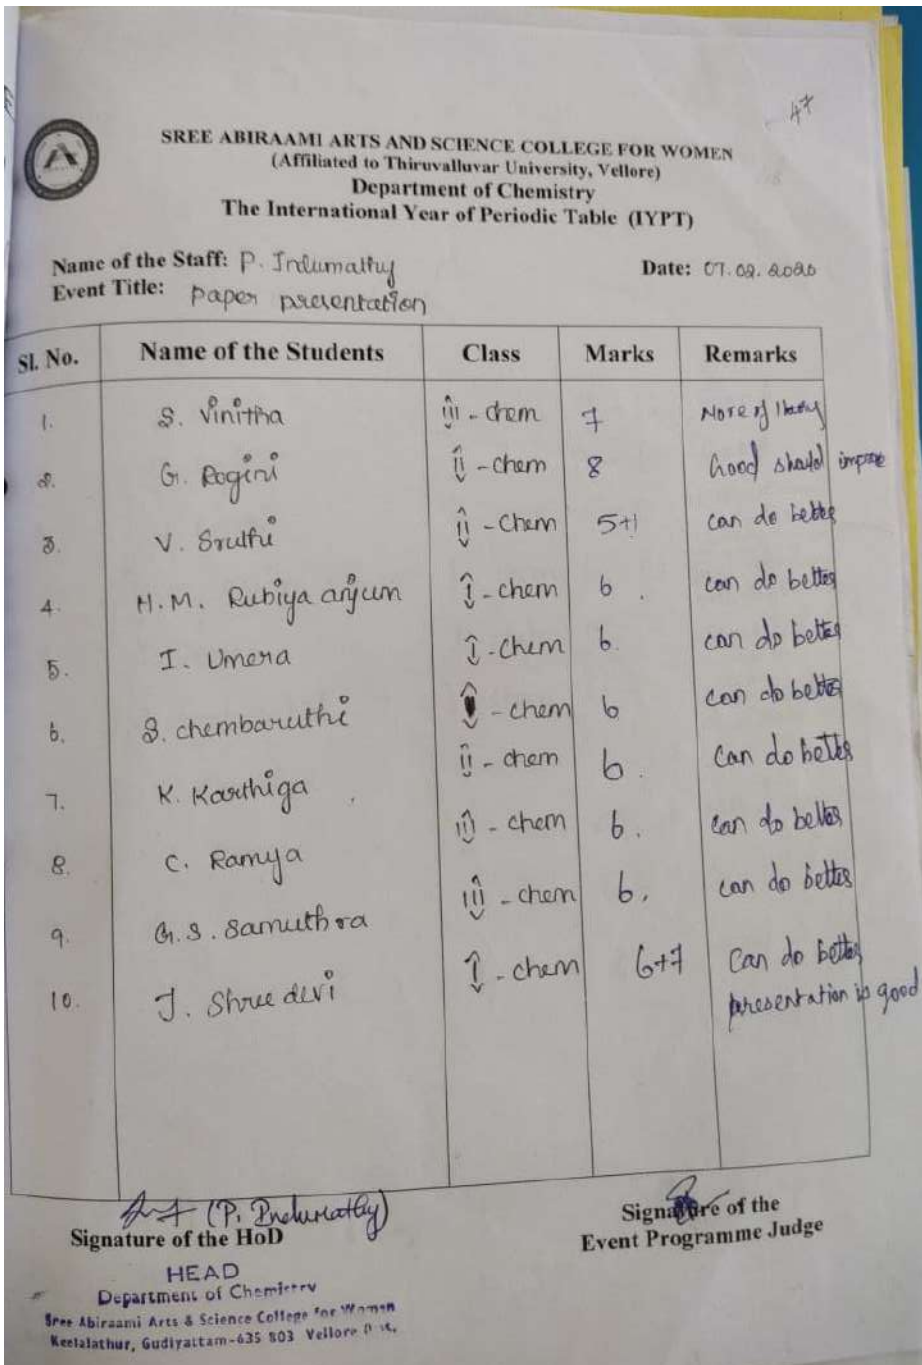 47
SREE ABIRAAMI ARTS AND SCIENCE COLLEGE FOR WOMEN
(Affiliated to Thiruvalluvar University, Vellore)
Department of Chemistry
The International Year of Periodic Table (IYPT)
Name of the Staff: P. Indumathy Date: 07.02.2020
Event Title: paper presentation
Sl. No. Name of the Students Class Marks Remarks
1. S. Vinitha iii - chem 7
2. G. Rogini ii - chem 8 Good should improve
3. V. Sruthi ii - Chem 5+1 can do better
4. H.M. Rubiya anjum I - chem 6. can do better
5. I. Umera I - chem 6. can do better
6. S. chembaruthi - chem 6 can do better
7. K. Karthiga ii - chem 6. Can do better
8. C. Ramya iii - chem 6. Can do better
9. G.S. Samuthra iii - chem 6. can do better
10. J. Shree devi I - chem 6+7 Can do better
presentation is good
(P. Indumathy)
Signature of the HoD
Signature of the
Event Programme Judge
HEAD
Department of Chemistry
Sree Abiraami Arts & Science College for Women
Keelalathur, Gudiyattam-635 803 Vellore